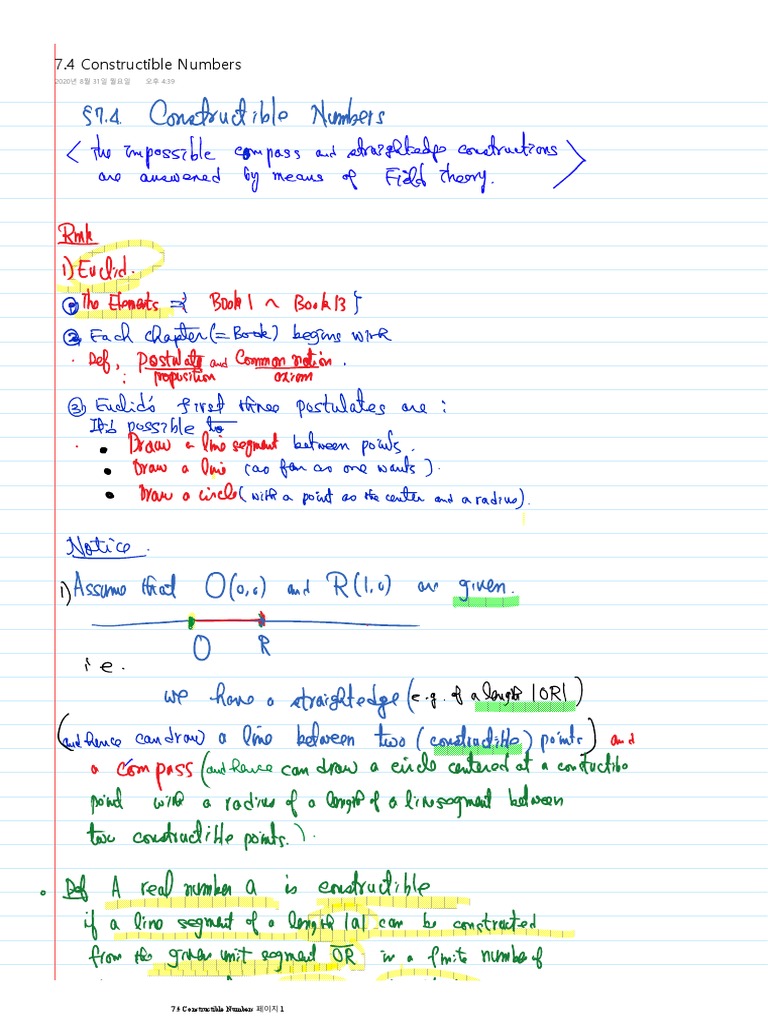 7.4 Constructible Numbers
2020년 8월 31일 월요일 오후 4:39
§7.4. Constructible Numbers
< The impossible compass and straightedge constructions
are answered by means of Field Theory. >
Rmk
1) Euclid.
① The Elements = { Book 1 ~ Book 13 }
② Each chapter (= Book) begins with
· Def, Postulate and Common notion.
: proposition axiom
③ Euclid's first three postulates are :
It is possible to
• Draw a line segment between points.
• Draw a line (as far as one wants).
• Draw a circle (with a point as the center and a radius).
Notice.
1) Assume that O(0,0) and R(1,0) are given.
O R
i.e.
We have a straightedge (e.g. of a length |OR|)
(and hence can draw a line between two (constructible) points) and
a compass (and hence can draw a circle centered at a constructible
point with a radius of a length of a line segment between
two constructible points.).
Def A real number a is constructible
if a line segment of a length |a| can be constructed
from the given unit segment OR in a finite number of
7.4 Constructible Numbers 페이지 1